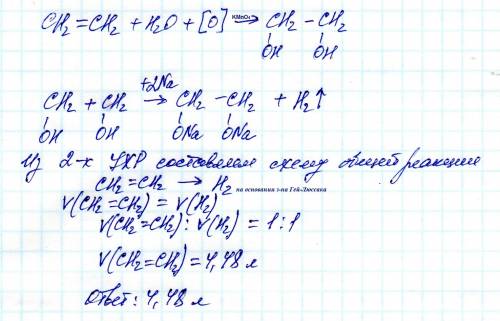 CH₂=CH₂ + H₂O + [O] KMnO₄→ CH₂–CH₂
OH OH
+2Na
CH₂ + CH₂ → CH₂–CH₂ + H₂↑
OH OH ONa ONa
Из 2-х УХР составляем схему общей реакции
CH₂=CH₂ → H₂ на основании з-на Гей-Люссака
V(CH₂=CH₂) = V(H₂)
V(CH₂=CH₂) : V(H₂) = 1:1
V(CH₂=CH₂) = 4,48 л
Ответ: 4,48 л